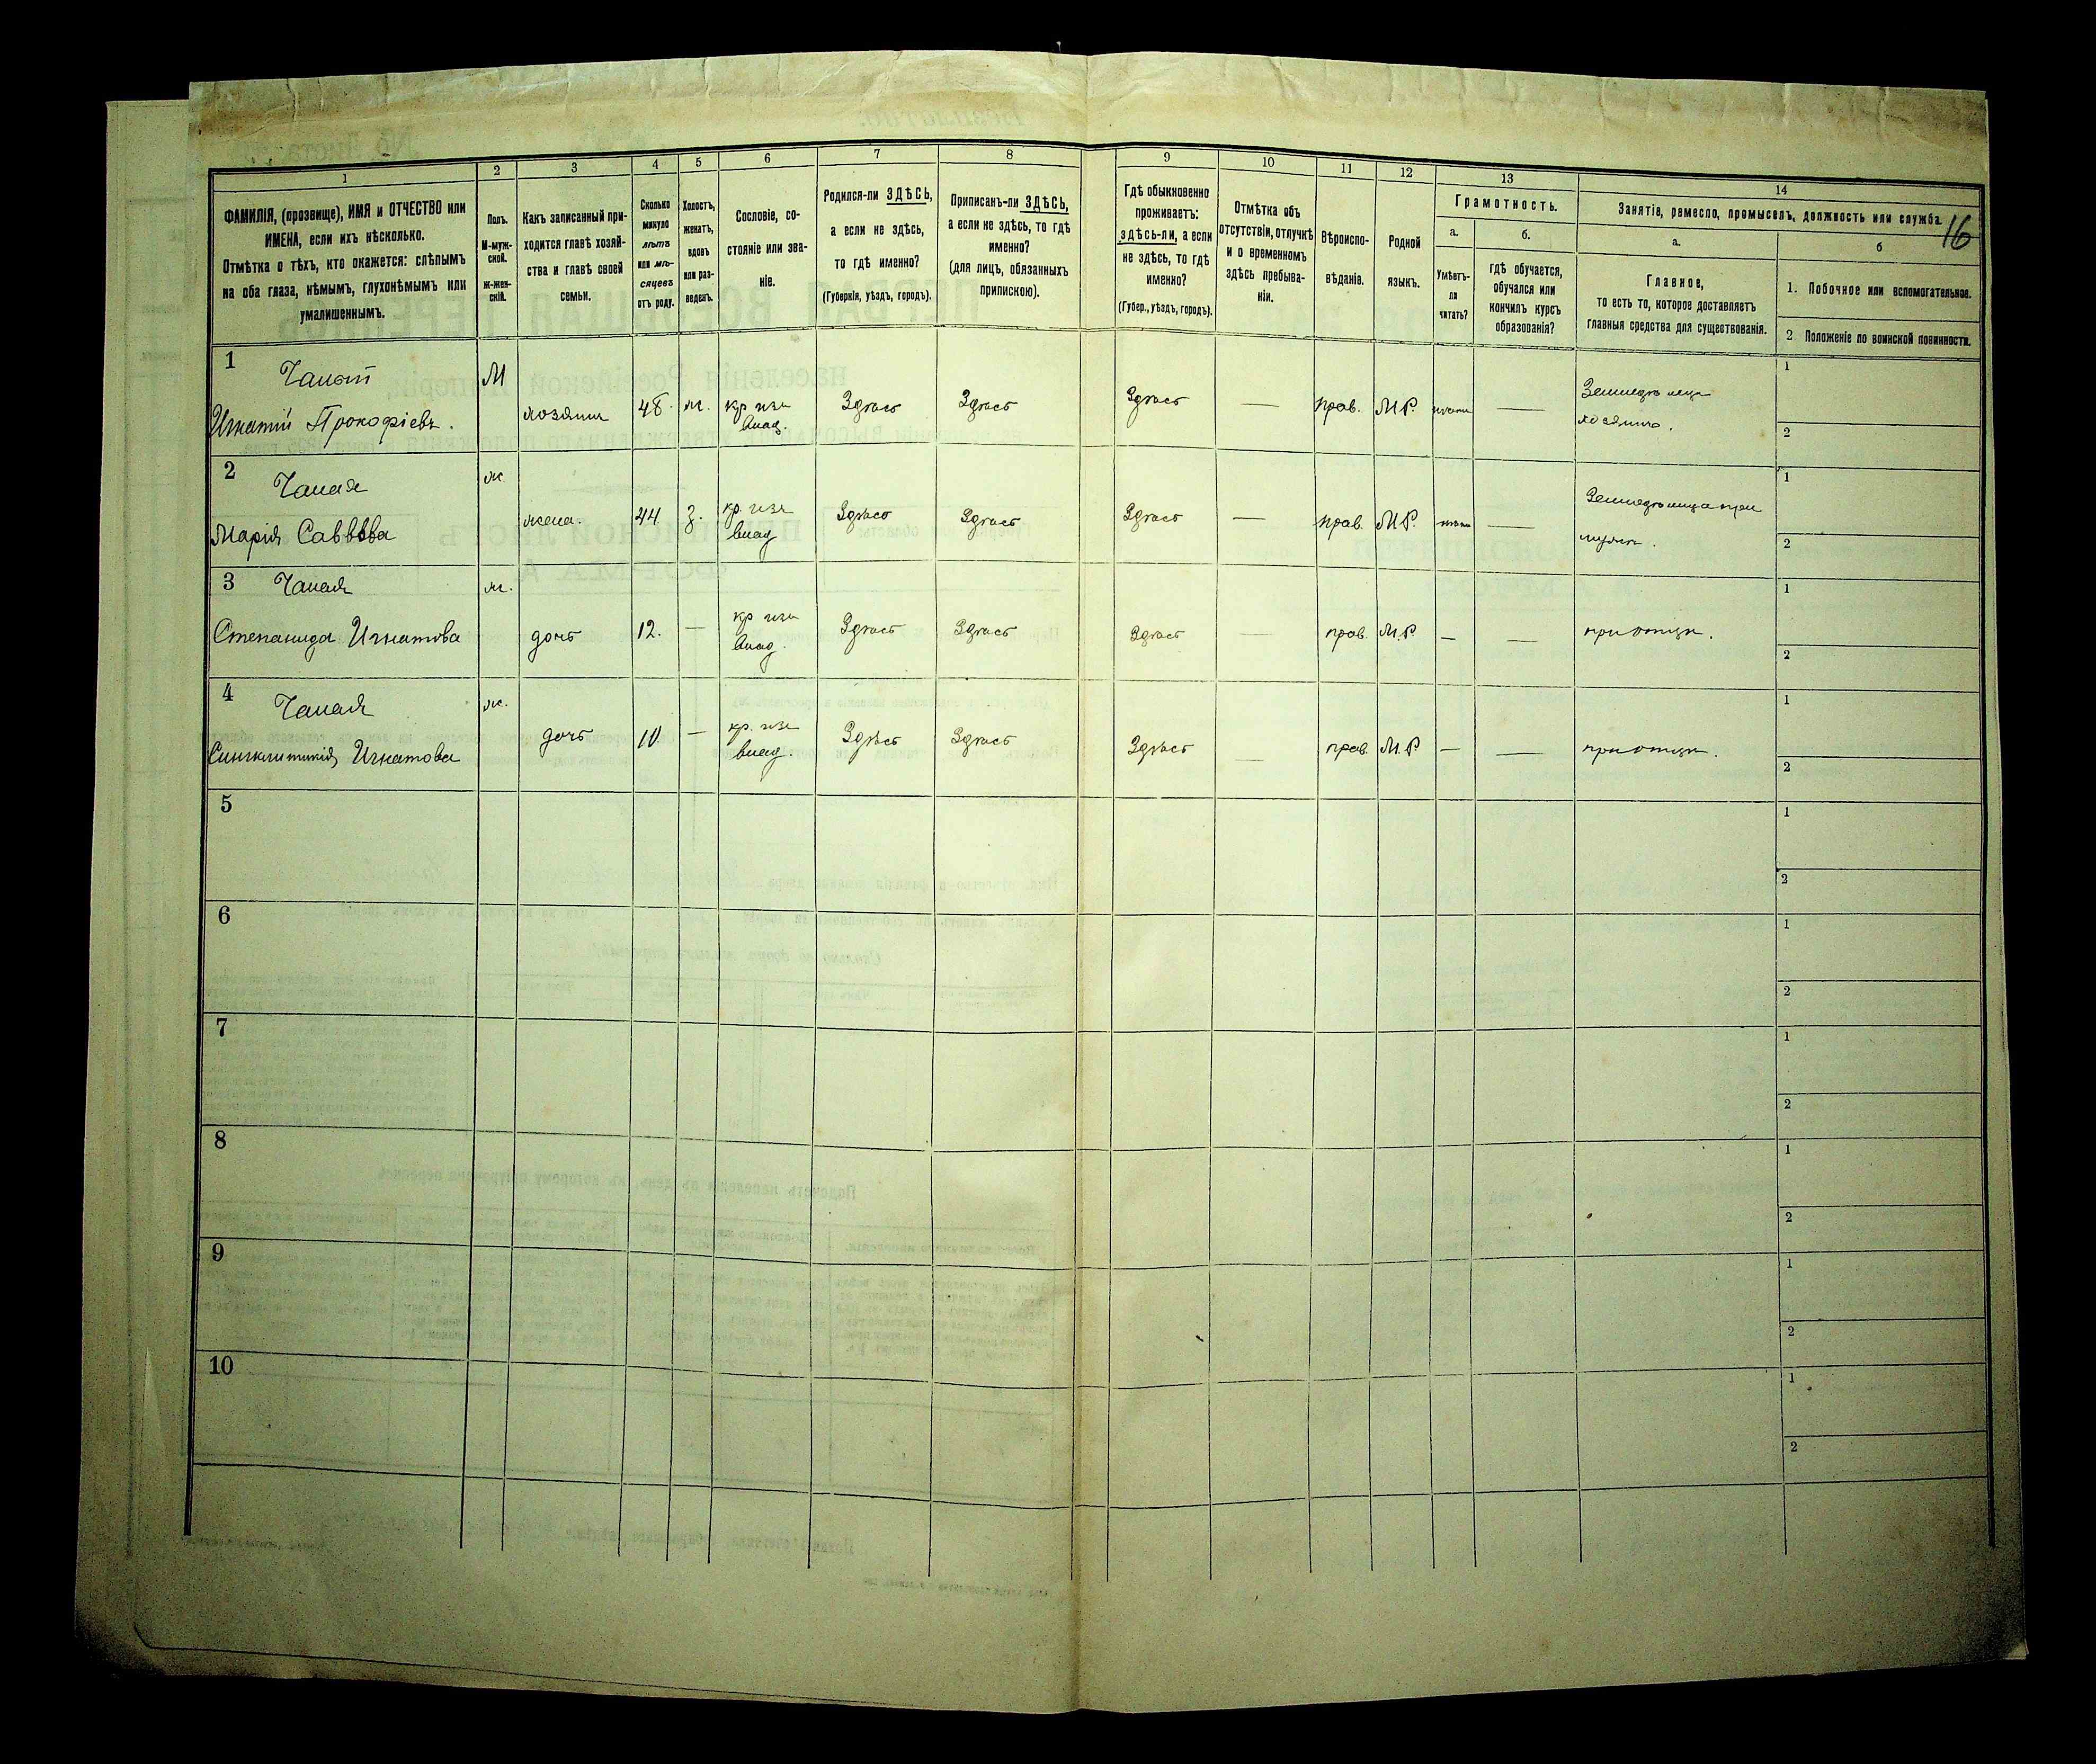 16
1
2
3
4
5
6
7
8
9
10
11
12
13
14
ФАМИЛІЯ, (прозвище), ИМЯ и ОТЧЕСТВО или
ИМЕНА, если ихъ нѣсколько.
Отмѣтка о тѣхъ, кто окажется: слѣпымъ
на оба глаза, нѣмымъ, глухонѣмымъ или
умалишеннымъ.
Полъ.
М-муж-
ской.
ж-жен-
скій.
Какъ записанный при-
ходится главѣ хозяй-
ства и главѣ своей
семьи.
Сколько
минуло
лѣтъ
или мѣ-
сяцевъ
отъ роду.
Холостъ,
женатъ,
вдовъ
или раз-
веденъ.
Сословіе, со-
стояніе или зва-
ніе.
Родился-ли ЗДѢСЬ,
а если не здѣсь,
то гдѣ именно?
(Губернія, уѣздъ, городъ).
Приписанъ-ли ЗДѢСЬ,
а если не здѣсь, то гдѣ
именно?
(для лицъ, обязанныхъ
припискою).
Гдѣ обыкновенно
проживаетъ:
здѣсь-ли, а если
не здѣсь, то гдѣ
именно?
(Губер., уѣздъ, городъ).
Отмѣтка объ
отсутствіи, отлучкѣ
и о временномъ
здѣсь пребыва-
ніи.
Вѣроиспо-
вѣданіе.
Родной
языкъ.
Грамотность.
а.
Умѣетъ-
ли
читать?
б.
гдѣ обучается,
обучался или
кончилъ курсъ
образованія?
Занятіе, ремесло, промыселъ, должность или служба.
а.
Главное,
то есть то, которое доставляетъ
главныя средства для существованія.
б
1. Побочное или вспомогательное.
2 Положеніе по воинской повинности.
1
Игнатій Прокофіевъ.
М
хозяинъ
48.
ж.
Здѣсь
Здѣсь
Здѣсь
—
прав.
М.Р.
—
хозяинъ.
1
2
2
Чалая
Марія Саввева
ж.
жена.
44
з.
Здѣсь
Здѣсь
Здѣсь
—
прав.
М.Р.
—
1
2
3
Чалая
Степанида Игнатова
ж.
дочь
12.
—
Здѣсь
Здѣсь
Здѣсь
—
прав.
М.Р.
—
—
при отцѣ.
1
2
4
Чалая
Синклитикія Игнатова
ж.
дочь
10
—
Здѣсь
Здѣсь
Здѣсь
—
прав.
М.Р.
—
—
при отцѣ.
1
2
5
1
2
6
1
2
7
1
2
8
1
2
9
1
2
10
1
2